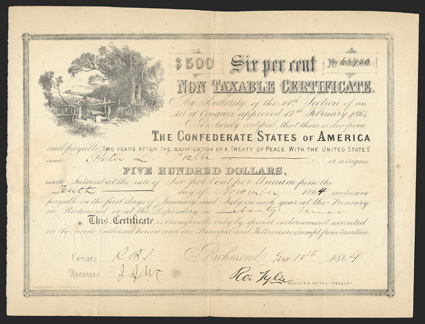 $500 Six per cent No
NON TAXABLE CERTIFICATE.
By Authority of the 14th Section of an
Act of Congress approved 17th February 1864
It is hereby certified that there is due from
THE CONFEDERATE STATES OF AMERICA
and payable TWO YEARS AFTER THE RATIFICATION OF A TREATY OF PEACE WITH THE UNITED STATES
unto Peter L. or assigns
FIVE HUNDRED DOLLARS,
with Interest at the rate of Six per Cent per Annum from the
Tenth day of 1864 inclusive
payable on the first day of January and July in each year at the Treasury
in Richmond or at the Depository in Liberty
This Certificate is transferable only by special endorsement executed
in the mode endorsed hereon and the Principal and Interest are exempt from taxation.
ENTERED
RECORDED
Richmond, 1864
Ro. Tyler
REGISTER OF THE TREASURY.